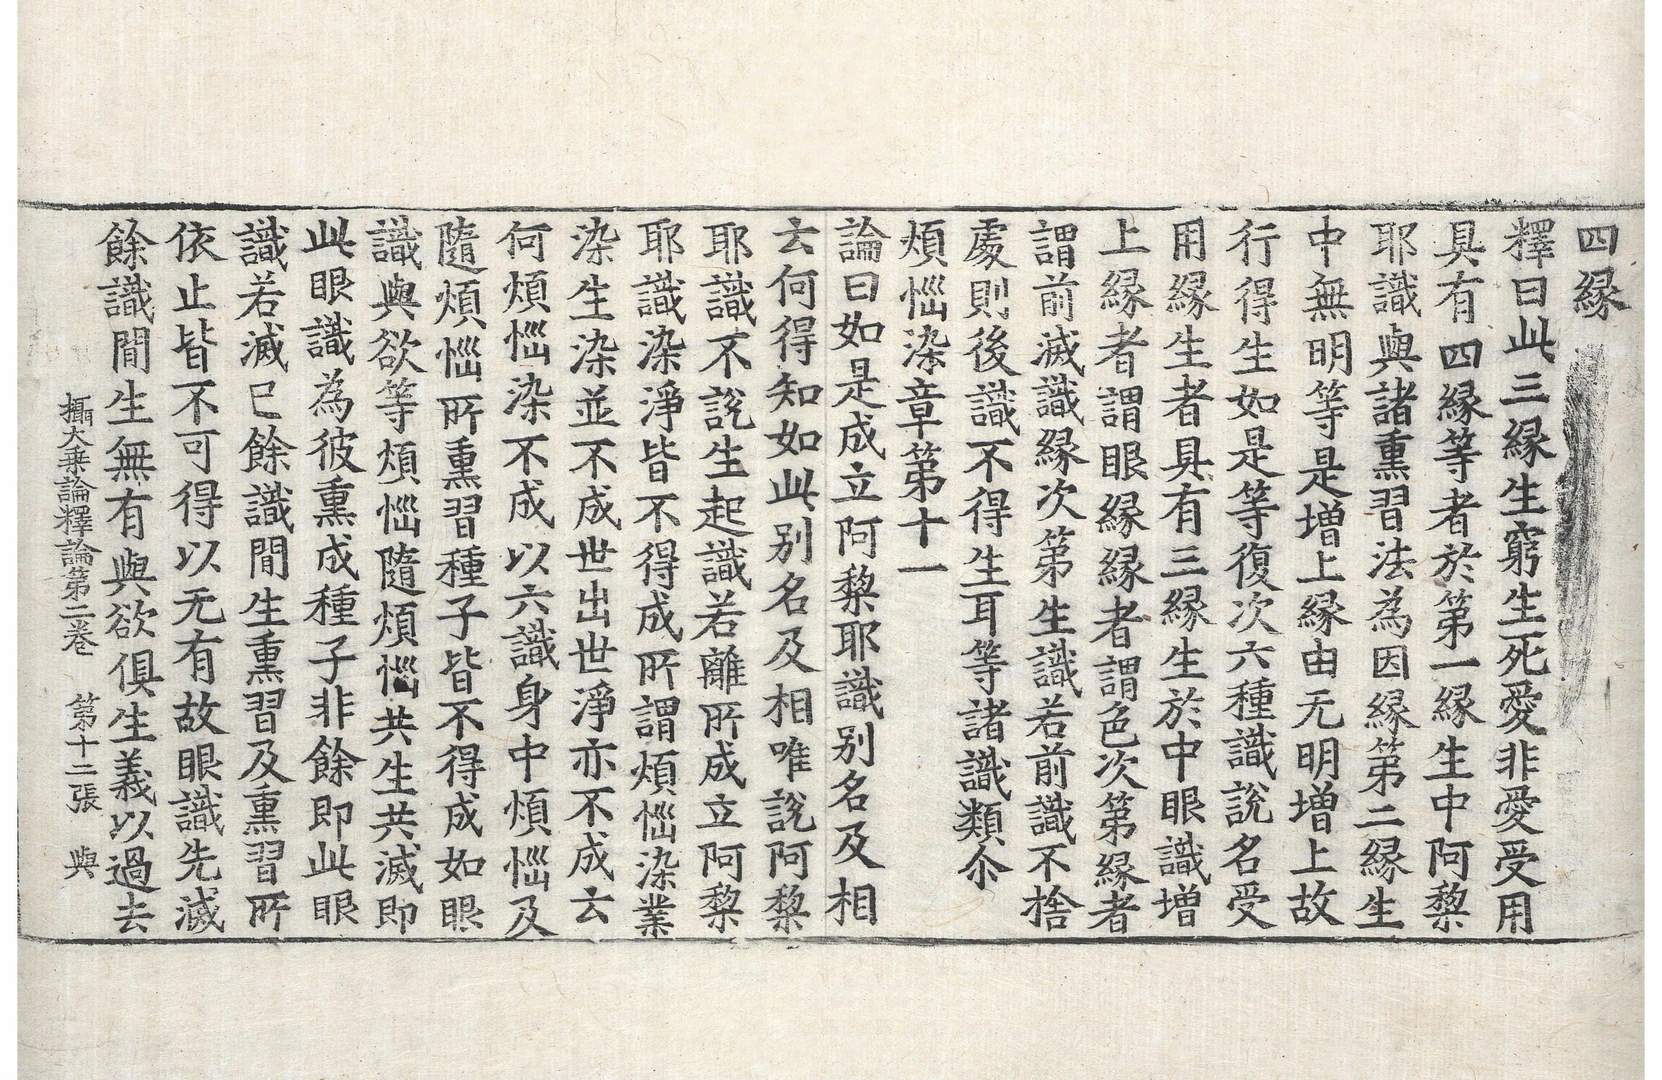 四縁
釋曰此三縁生窮生死愛非愛受用
具有四縁等者於第一縁生中阿黎
耶識與諸熏習法為因縁第二縁生
中無明等是增上縁由无明增上故
行得生如是等復次六種識說名受
用縁生者具有三縁生於中眼識增
上縁者謂眼縁縁者謂色次第縁者
謂前滅識縁次第生識若前識不捨
處則後識不得生耳等諸識類尒
煩惱染章第十一
論曰如是成立阿黎耶識別名及相
云何得知如此別名及相唯說阿黎
耶識不說生起識若離所成立阿黎
耶識染淨皆不得成所謂煩惱染業
染生染並不成世出世淨亦不成云
何煩惱染不成以六識身中煩惱及
隨煩惱所熏習種子皆不得成如眼
識與欲等煩惱隨煩惱共生共滅即
此眼識為彼熏成種子非餘即此眼
識若滅已餘識間生熏習及熏習所
依止皆不可得以无有故眼識先滅
餘識間生無有與欲俱生義以過去
攝大乗論釋論第二卷　第十二張　與